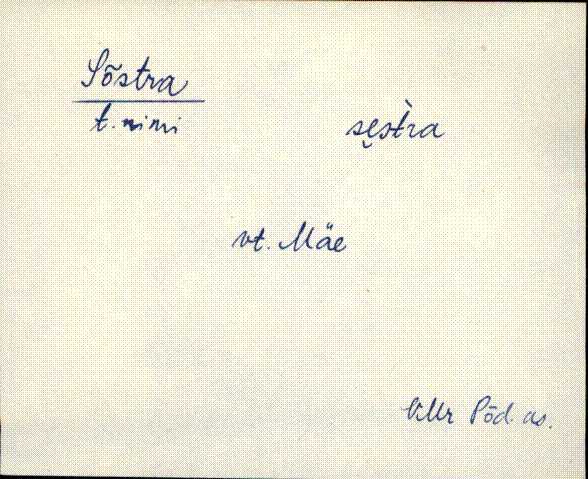 Sõstra
t. nimi
se̮str̀a
vt. Mäe
VMr Põd. as.